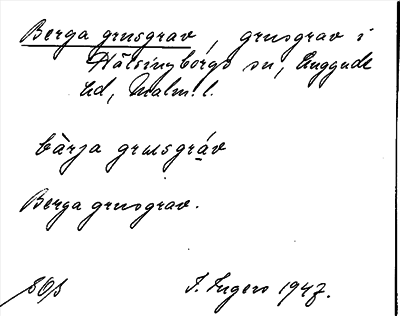 Berga grusgrav, grusgrav i
Hälsingborgs sn, Luggude
hd, Malm. l.
bàrja grusgráv
Berga grusgrav.
I. Ingers 1947.